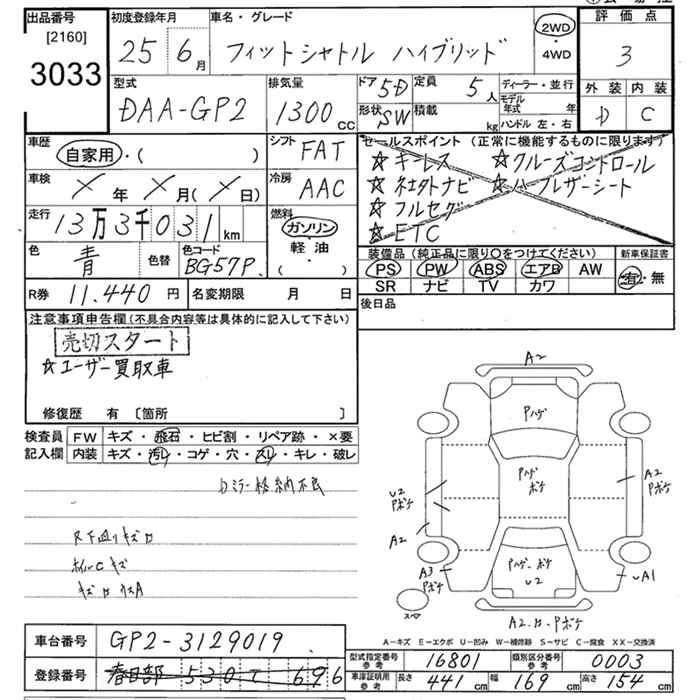 出品番号 初度登録年月 車名・グレード 評価点
[2160]
3033
25 6月 フィットシャトル ハイブリッド 2WD・4WD 3
型式 排気量 ドア 5D 定員 5人 ディーラー・並行 外装 内装
DAA-GP2 1300cc 形状 SW 積載 kg モデル年式 年 D C
ハンドル 左・右
車歴 シフト FAT セールスポイント (正常に機能するものに限ります)
自家用・( )
☆キーレス ☆クルーズコントロール
車検 冷房 AAC ☆社外ナビ ☆ハーフレザーシート
年 月( 日)
☆フルセグ
走行 13万3千031km 燃料 ☆ETC
ガソリン・軽油・( )
色 青 色替 色コード BG57P 装備品 (純正品に限り○をつけてください) 新車保証書
PS PW ABS エアB AW 有・無
SR ナビ TV カワ
R券 11,440円 名変期限 月 日 後日品
注意事項申告欄(不具合内容等は具体的に記入して下さい)
売切スタート
☆ユーザー買取車
修復歴 有 〔箇所 〕
検査員記入欄 FW キズ・飛石・ヒビ割・リペア跡・×要
内装 キズ・汚レ・コゲ・穴・スレ・キレ・破レ
カミラー格納不良
R下廻りキズロ
ホイールCキズ
A2
Pハゲ
Pハゲ ボケ
U2 Pボケ
A2 Pボケ
A2
A3 Pボケ
Pハゲ・ボケ U2
UA1
スペア
A2.ロ.Pボケ
A-キズ E-エクボ U-凹み W-補修跡 S-サビ C-腐食 XX-交換済
車台番号 GP2-3129019
型式指定番号 参考 16801 類別区分番号 参考 0003
登録番号 春日部 530 て 696
車庫証明用 参考 長さ 441cm 幅 169cm 高さ 154cm